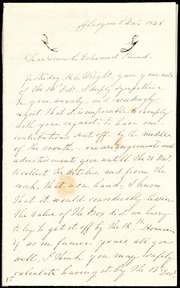 Glasgow 1 Nov 1848
Dear & Much Esteemed Friend
Yesterday H.C. Wright, gave your note
of the 14th. I deeply sympathise
in your anxiety, and exceedingly
regret that it is impossible to comply
with your request to have our
contribution sent off by the middle
of the month — our arrangements and
advertisements given out the 20 Nov
to collect the Articles, and from the
work that is on hand, I know
that it would considerably lessen
the value of the Box did we hurry
try to get it off by the 18th. However
if as in former years all goes
well. I think you may safely
calculate having it by the 18 Dec